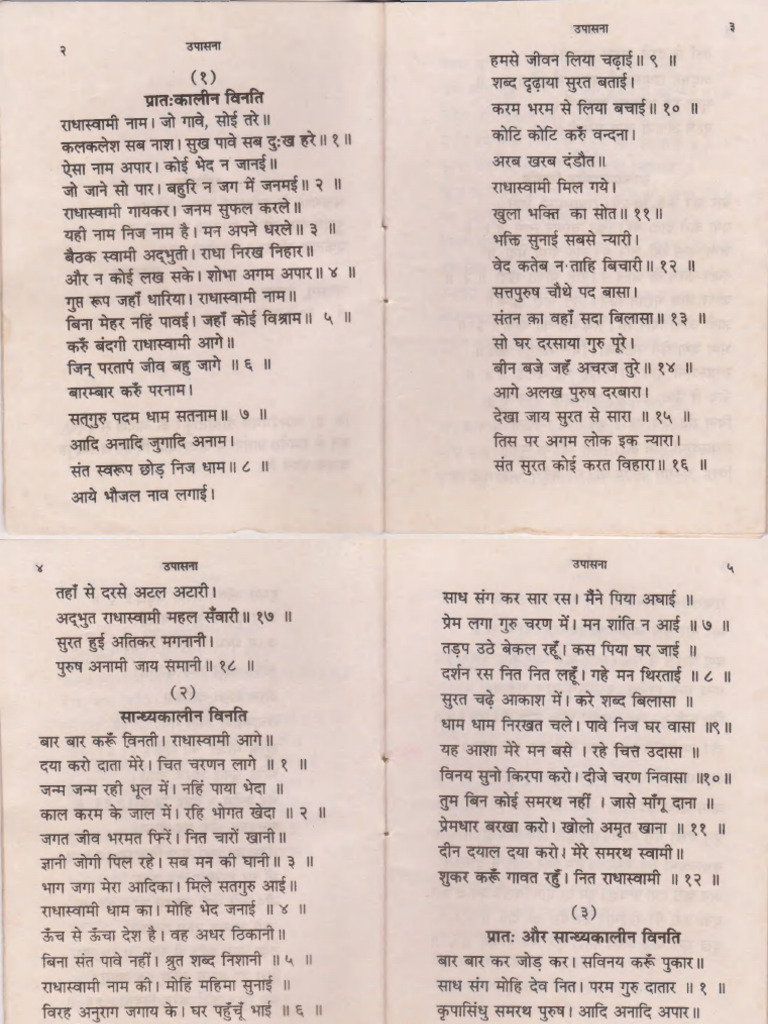 २ उपासना
(१)
प्रातःकालीन विनति
राधास्वामी नाम। जो गावे, सोई तरे॥
कलकलेश सब नाश। सुख पावे सब दुःख हरे॥ १ ॥
ऐसा नाम अपार। कोई भेद न जानई॥
जो जाने सो पार। बहुरि न जग में जनमई॥ २ ॥
राधास्वामी गायकर। जनम सुफल करले॥
यही नाम निज नाम है। मन अपने धरले॥ ३ ॥
बैठक स्वामी अद्भुती। राधा निरख निहार॥
और न कोई लख सके। शोभा अगम अपार॥ ४ ॥
गुप्त रूप जहाँ धारिया। राधास्वामी नाम॥
बिना मेहर नहिं पावई। जहाँ कोई विश्राम॥ ५ ॥
करुँ बंदगी राधास्वामी आगे॥
जिन् परतापं जीव बहु जागे ॥ ६ ॥
बारम्बार करुँ परनाम।
सत्गुरु पदम धाम सतनाम॥ ७ ॥
आदि अनादि जुगादि अनाम।
संत स्वरूप छोड़ निज धाम॥ ८ ॥
आये भौजल नाव लगाई।
उपासना ३
हमसे जीवन लिया चढ़ाई॥ ९ ॥
शब्द दृढ़ाया सुरत बताई।
करम भरम से लिया बचाई॥ १० ॥
कोटि कोटि करुँ वन्दना।
अरब खरब दंडौत॥
राधास्वामी मिल गये।
खुला भक्ति का सोत॥ ११॥
भक्ति सुनाई सबसे न्यारी।
वेद कतेब न ताहि बिचारी॥ १२ ॥
सत्तपुरुष चौथे पद बासा।
संतन का वहाँ सदा बिलासा॥ १३ ॥
सो घर दरसाया गुरु पूरे।
बीन बजे जहँ अचरज तुरे॥ १४ ॥
आगे अलख पुरुष दरबारा।
देखा जाय सुरत से सारा ॥ १५ ॥
तिस पर अगम लोक इक न्यारा।
संत सुरत कोई करत विहारा॥ १६ ॥
४ उपासना
तहाँ से दरसे अटल अटारी।
अद्भुत राधास्वामी महल सँवारी॥ १७ ॥
सुरत हुई अतिकर मगनानी।
पुरुष अनामी जाय समानी॥ १८ ॥
(२)
सान्ध्यकालीन विनति
बार बार करूँ विनती। राधास्वामी आगे॥
दया करो दाता मेरे। चित चरणन लागे ॥ १ ॥
जन्म जन्म रही भूल में। नहिं पाया भेदा ॥
काल करम के जाल में। रहि भोगत खेदा ॥ २ ॥
जगत जीव भरमत फिरें। नित चारों खानी॥
ज्ञानी जोगी पिल रहे। सब मन की घानी॥ ३ ॥
भाग जगा मेरा आदिका। मिले सतगुरु आई॥
राधास्वामी धाम का। मोहि भेद जनाई ॥ ४ ॥
ऊँच से ऊँचा देश है। वह अधर ठिकानी॥
बिना संत पावे नहीं। श्रुत शब्द निशानी ॥ ५ ॥
राधास्वामी नाम की। मोहिं महिमा सुनाई ॥
विरह अनुराग जगाय के। घर पहुँचूँ भाई ॥ ६ ॥
उपासना ५
साध संग कर सार रस। मैंने पिया अघाई ॥
प्रेम लगा गुरु चरण में। मन शांति न आई ॥ ७ ॥
तड़प उठे बेकल रहूँ। कस पिया घर जाई ॥
दर्शन रस नित नित लहूँ। गहे मन थिरताई ॥ ८ ॥
सुरत चढ़े आकाश में। करे शब्द बिलासा ॥
धाम धाम निरखत चले। पावे निज घर वासा ॥९॥
यह आशा मेरे मन बसे । रहे चित्त उदासा ॥
विनय सुनो किरपा करो। दीजे चरण निवासा ॥१०॥
तुम बिन कोई समरथ नहीं । जासे माँगू दाना ॥
प्रेमधार बरखा करो। खोलो अमृत खाना ॥ ११ ॥
दीन दयाल दया करो। मेरे समरथ स्वामी॥
शुकर करूँ गावत रहुँ। नित राधास्वामी ॥ १२ ॥
(३)
प्रातः और सान्ध्यकालीन विनति
बार बार कर जोड़ कर। सविनय करूँ पुकार॥
साध संग मोहि देव नित। परम गुरु दातार ॥ १ ॥
कृपासिंधु समरथ पुरुष। आदि अनादि अपार॥